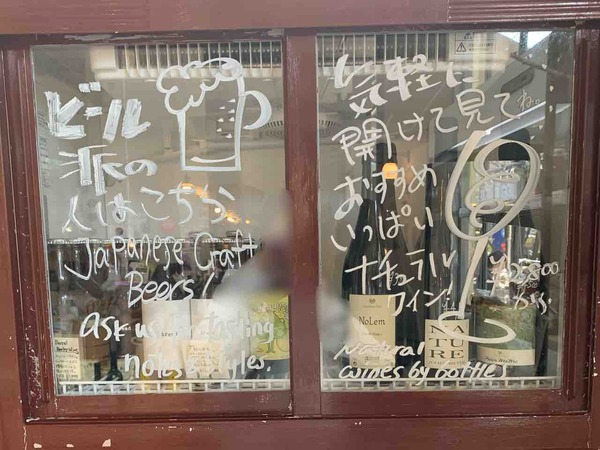 ビール
派の
人はこちら
Japanese Craft
Beers!
ask us for tasting
notes & styles.
気軽に
開けて見てね。
おすすめ
いっぱい
ナチュラル
ワイン!
Natural
wines by bottles
NoLem
NA
TU
RE